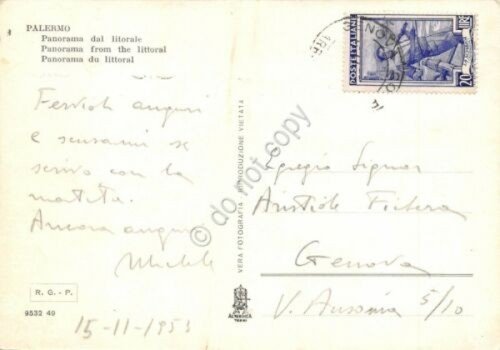 PALERMO
Panorama dal litorale
Panorama from the littoral
Panorama du littoral
Fervidi auguri
e scusami se
scrivo con la
matita.
Ancora auguri
Michele
R. G. - P.
9532 49
15-11-1953
VERA FOTOGRAFIA - RIPRODUZIONE VIETATA
ALTEROCCA
TERNI
POSTE ITALIANE
20
LIRE
GENOVA
Egregio Signor
Aristide
Genova
V. Ausonia 5/10
do not copy